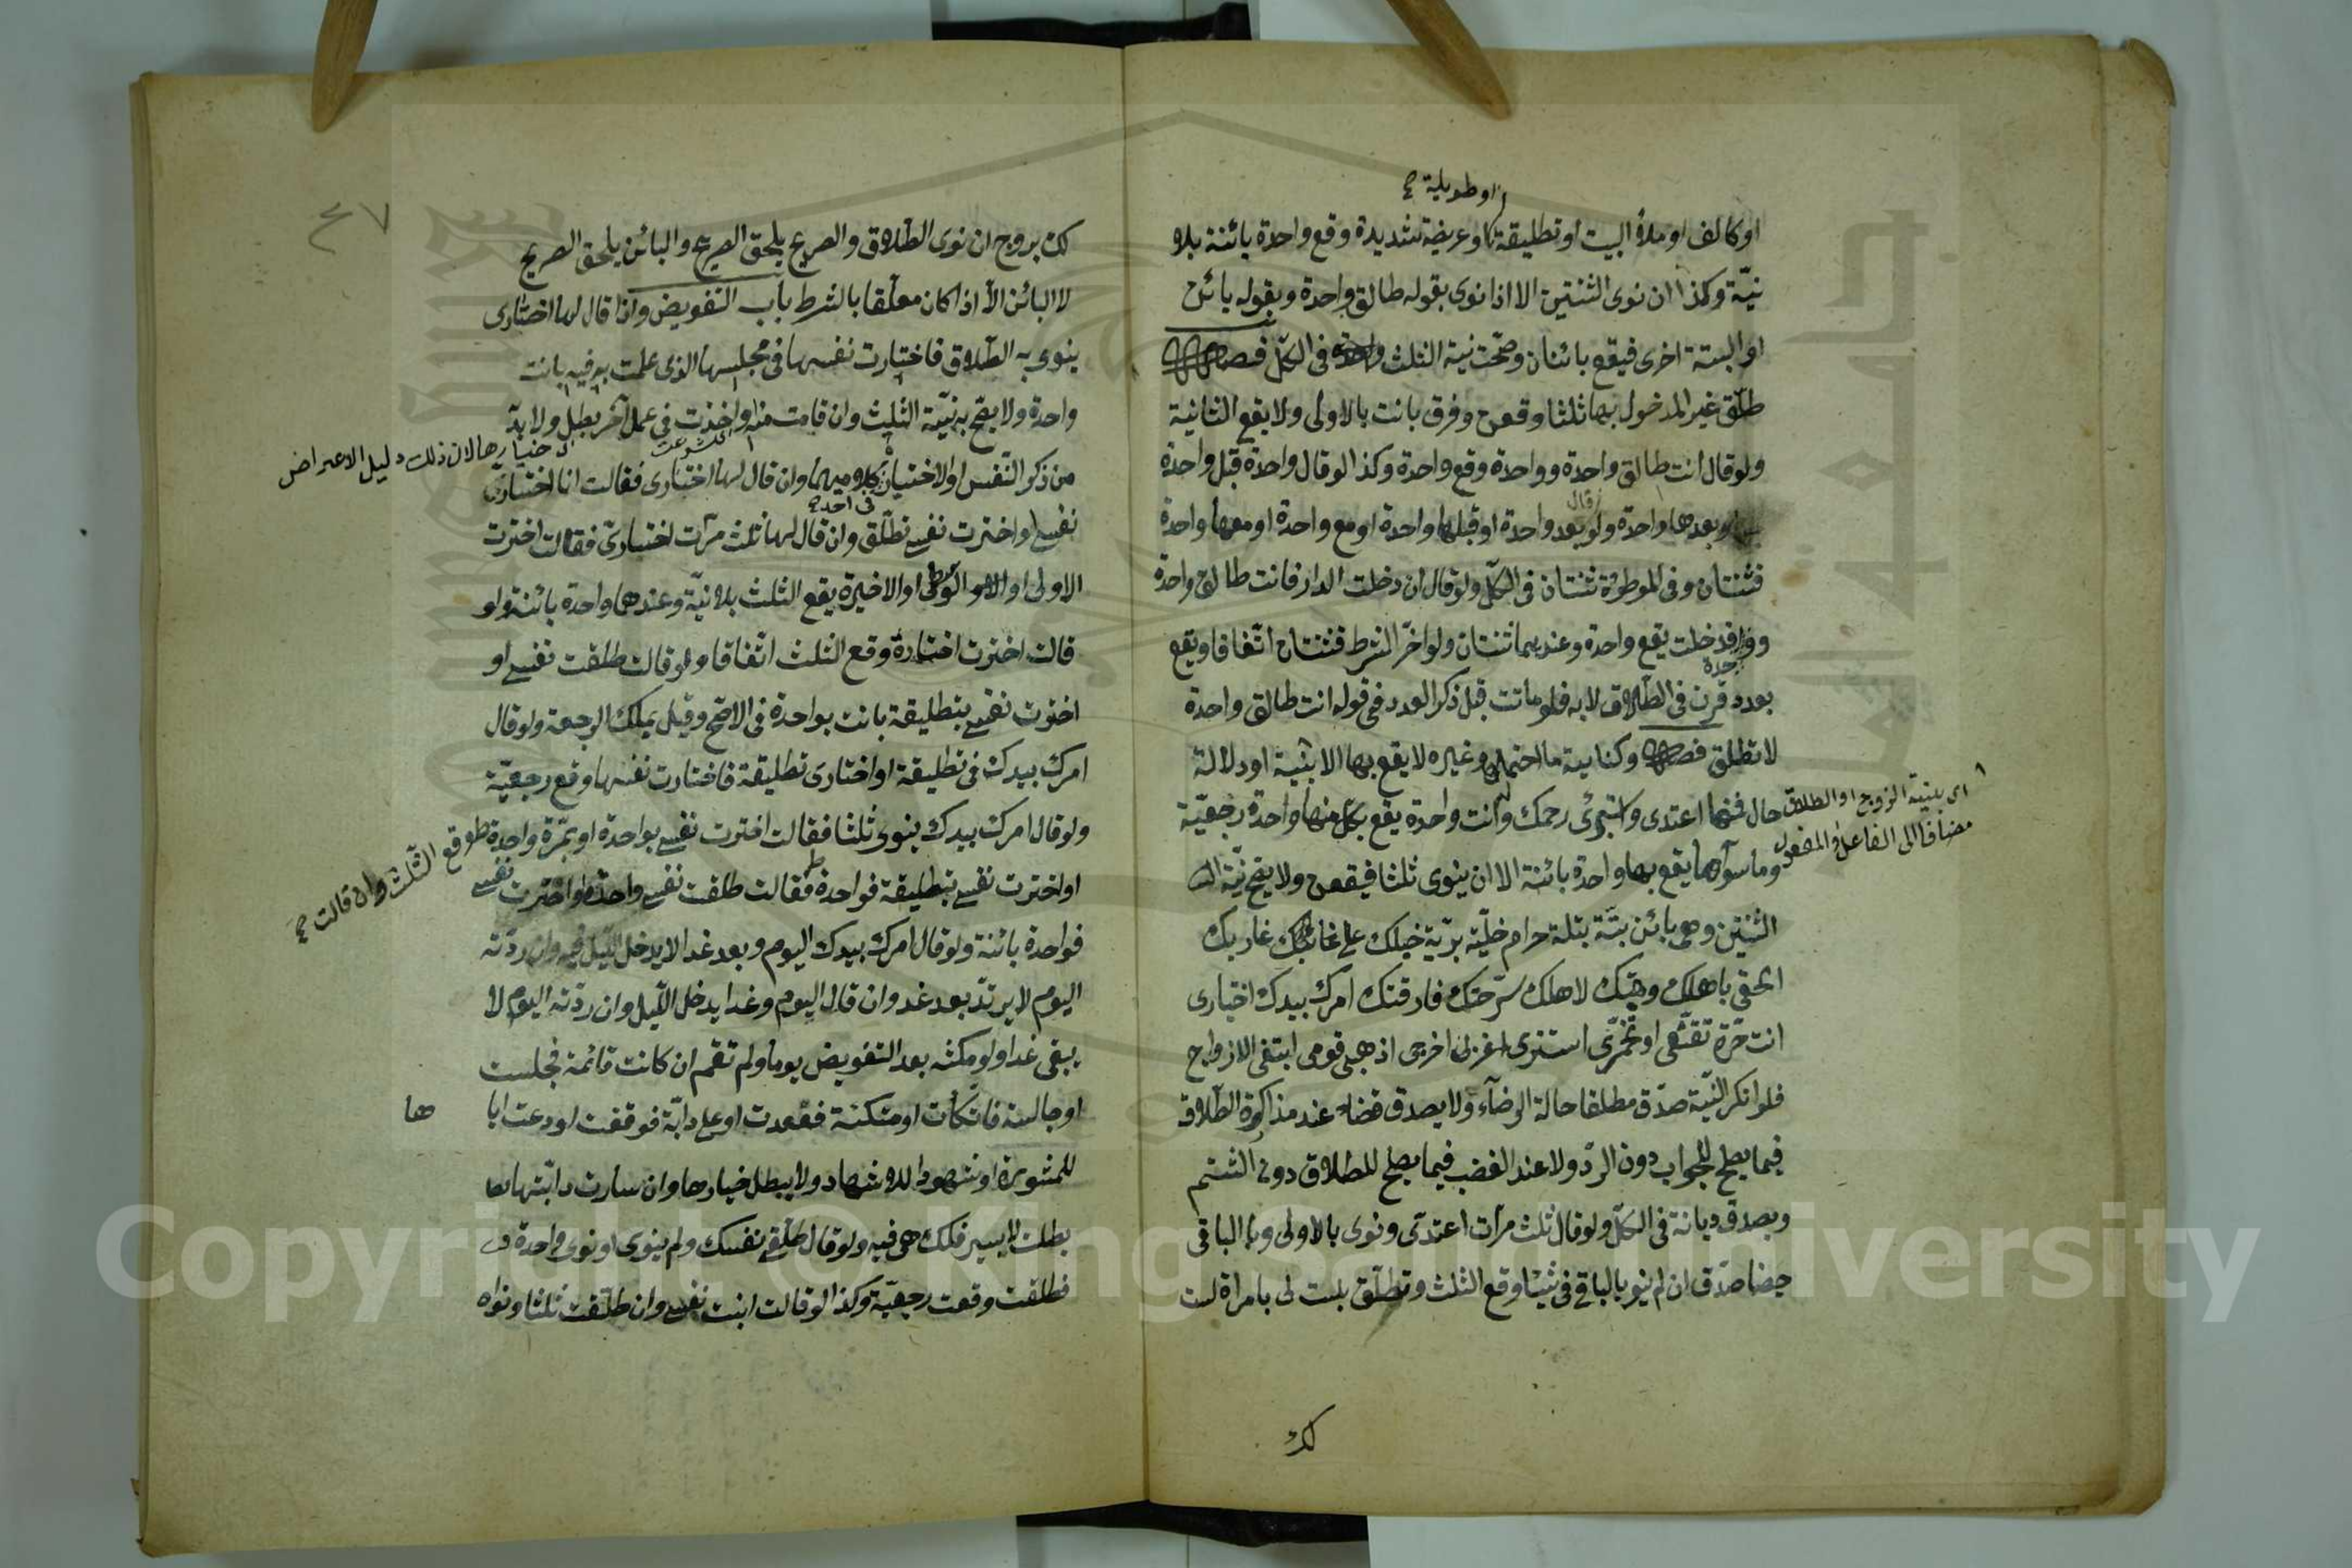 او طويلة صح
او كالف او ملأ البيت او تطليقة او عريضة شديدة وقع واحدة بائنة بلا
نيّة وكذا ان نوى الثنتين الا اذا نوى بقوله طالق واحدة وبقوله بائن
او البتة اخرى فيقع بائنتان وصحّت نية الثلث في الكلّ فصل
طلّق غير المدخول بها ثلثا وقعن وفرق بانت بالاولى ولا يقع الثانية
ولو قال انت طالق واحدة وواحدة وقع واحدة وكذا لو قال واحدة قبل واحدة
او بعدها واحدة ولو قال بعد واحدة او قبلها واحدة او مع واحدة او معها واحدة
فثنتان وفى الموطؤة ثنتان فى الكلّ ولو قال ان دخلت الدار فانت طالق واحدة
وواحدة فدخلت يقع واحدة وعندهما ثنتان ولو اخّر الشرط فثنتان اتّفاقا ويقع
بعدد قرن فى الطّلاق لا به فلو ماتت قبل ذكر العدد ففى قوله انت طالق واحدة
لا تطلق فصل وكنايته ما احتمله وغيره لا يقع بها الا بنية او دلالة
اى بنية الزوج او الطلاق
مضافا الى الفاعل والمفعول
حال فمنها اعتدى واستبرئ رحمك وانت واحدة يقع بكلّ منها واحدة رجعيّة
وما سواها يقع بها واحدة بائنة الا ان ينوى ثلثا فيقعن ولا يصح نيّة
الثنتين وهى بائن بتّة بتلة حرام خليّة بريّة حبلك على غاربك
الحقى باهلك وهبتك لاهلك سرّحتك فارقتك امرك بيدك اختيارى
انت حرّة تقنّعى او تخمّرى استترى اغربى اخرجى اذهبى قومى ابتغى الازواج
فلو انكر النيّة صدّق مطلقا حالة الرضآء ولا يصدق قضاء عند مذاكرة الطّلاق
فيما يصلح للجواب دون الردّ ولا عند الغضب فيما يصلح للطلاق دون الشتم
ويصدق ديانة فى الكلّ ولو قال ثلث مرآت اعتدّى ونوى بالاولى وبا الباقى
حيضا صدّق ان لم ينو بالباقى فى شيئا وقع الثلث وتطلّق بلست لى بامراة لست
لك
٤٧
لك بزوج ان نوى الطّلاق والصريح يلحق الصريح والبائن يلحق الصريح
لا البائن الاّ اذا كان معلّقا بالشرط باب التفويض واذا قال لها اختارى
ينوى به الطّلاق فاختارت نفسها فى مجلسها الذى علمت به فيه بانت
واحدة ولا يصحّ به نيّة الثلث وان قامت منه او اخذت فى عمل آخر بطل ولا بدّ
خيارها لان ذلك دليل الاعراض
من ذكر النّفس او الاختيار فى احد كلاميهما وان قال لها اختارى فقالت انا اختار
نفسى او اخترت نفسى تطلّق وان قال لها ثلث مرّت اختارىّ فقالت اخترت
الاولى او الوسطى او الاخيرة يقع الثلث بلا نيّة وعندهما واحدة بائنة ولو
قالت اخترت اختيارة وقع الثلث اتّفاقا ولو قالت طلقت نفسى او
اخترت نفسى بتطليقة بانت بواحدة فى الاصحّ وقيل يملك الرجعة ولو قال
امرك بيدك فى تطليقة او اختارى تطليقة فاختارت نفسها وقع رجعيّة
ولو قال امرك بيدك ينوى ثلثا فقالت اخترت نفسى بواحدة او بمرّة واحدة وقع الثّلث وان قالت صح
او اخترت نفسى بتطليقة فواحدة فقالت طلقت نفسى واحدة او اخترت نفسى
فواحدة بائنة ولو قال امرك بيدك اليوم وبعد غد لا يدخل اللّيل فيه وان ردّته
اليوم لا يرتدّ بعد غد وان قال اليوم وغدا يدخل اللّيل وان ردّته اليوم لا
يبقى غدا ولو مكثت بعد التفويض يوما ولم تقم ان كانت قائمة فجلست
او جالسة فاتّكأت او متكئة فقعدت او على دابّة فوقفت او دعت ابا ها
للمشورة او شهودا للاشهاد ولا يبطل خيارها وان سارت دابّتها
بطلت لا بسير فلك هى فيه ولو قال طلّقى نفسك ولم ينوى او نوى واحدة
فطلقت وقعت رجعيّة وكذا لو قالت ابنت نفسى وان طلّقت ثلثا ونواه